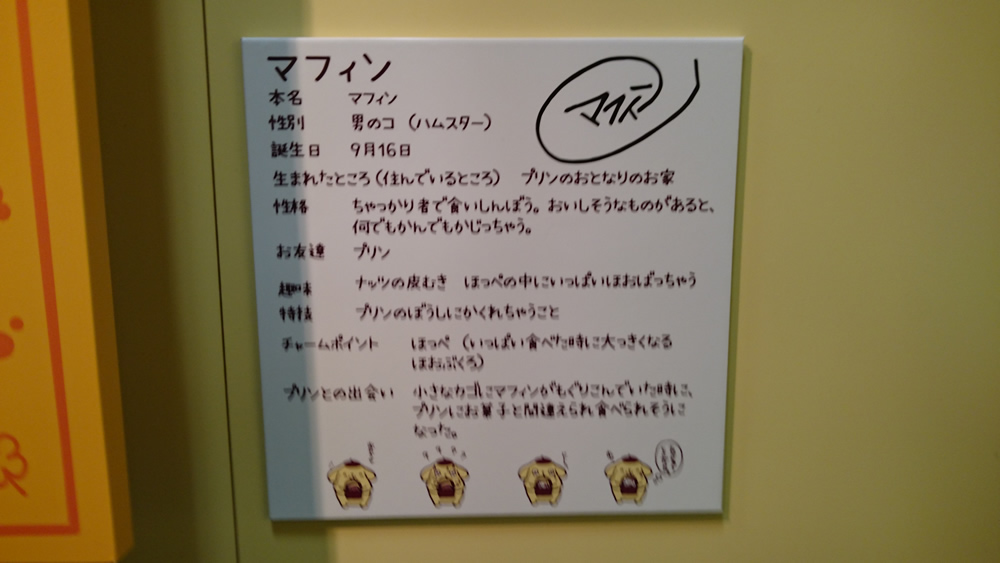 マフィン
本名 マフィン
性別 男のコ (ハムスター)
誕生日 9月16日
生まれたところ(住んでいるところ) プリンのおとなりのお家
性格 ちゃっかり者で食いしんぼう。おいしそうなものがあると、
何でもかんでもかじっちゃう。
お友達 プリン
趣味 ナッツの皮むき ほっぺの中にいっぱいほおばっちゃう
特技 プリンのぼうしにかくれちゃうこと
チャームポイント ほっぺ (いっぱい食べた時に大っきくなる
ほおぶくろ)
プリンとの出会い 小さなカゴにマフィンがもぐりこんでいた時に、
プリンにお菓子と間違えられ食べられそうに
なった。